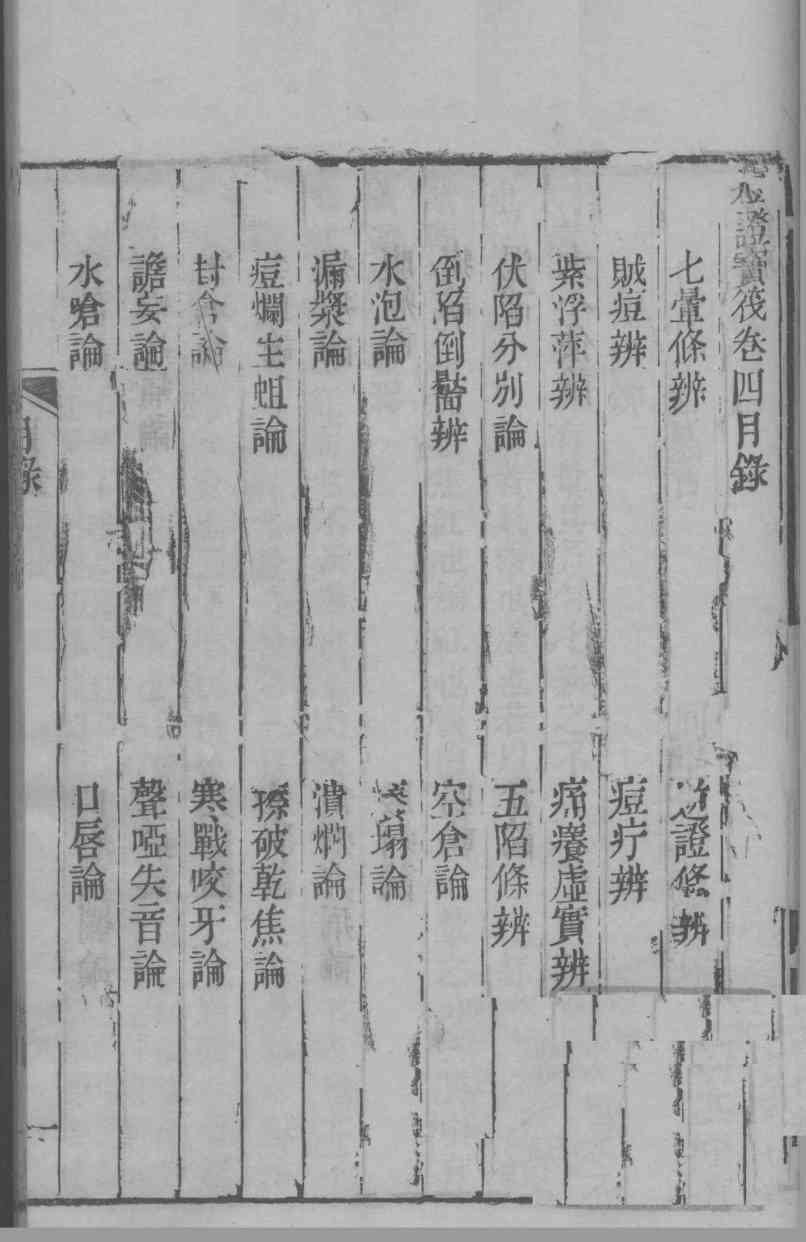 證寶筏卷四目錄
七暈條辨
證條辨
賊痘辨
痘疔辨
紫浮萍辨
痛癢虛實辨
伏陷分别論
五陷條辨
倒陷倒靨辨
空倉論
水泡論
塌論
漏漿論
潰爛論
痘爛生蛆論
擦破乾焦論
封倉論
寒戰咬牙論
譫妄論
聲啞失音論
水嗆論
口唇論
目錄
一